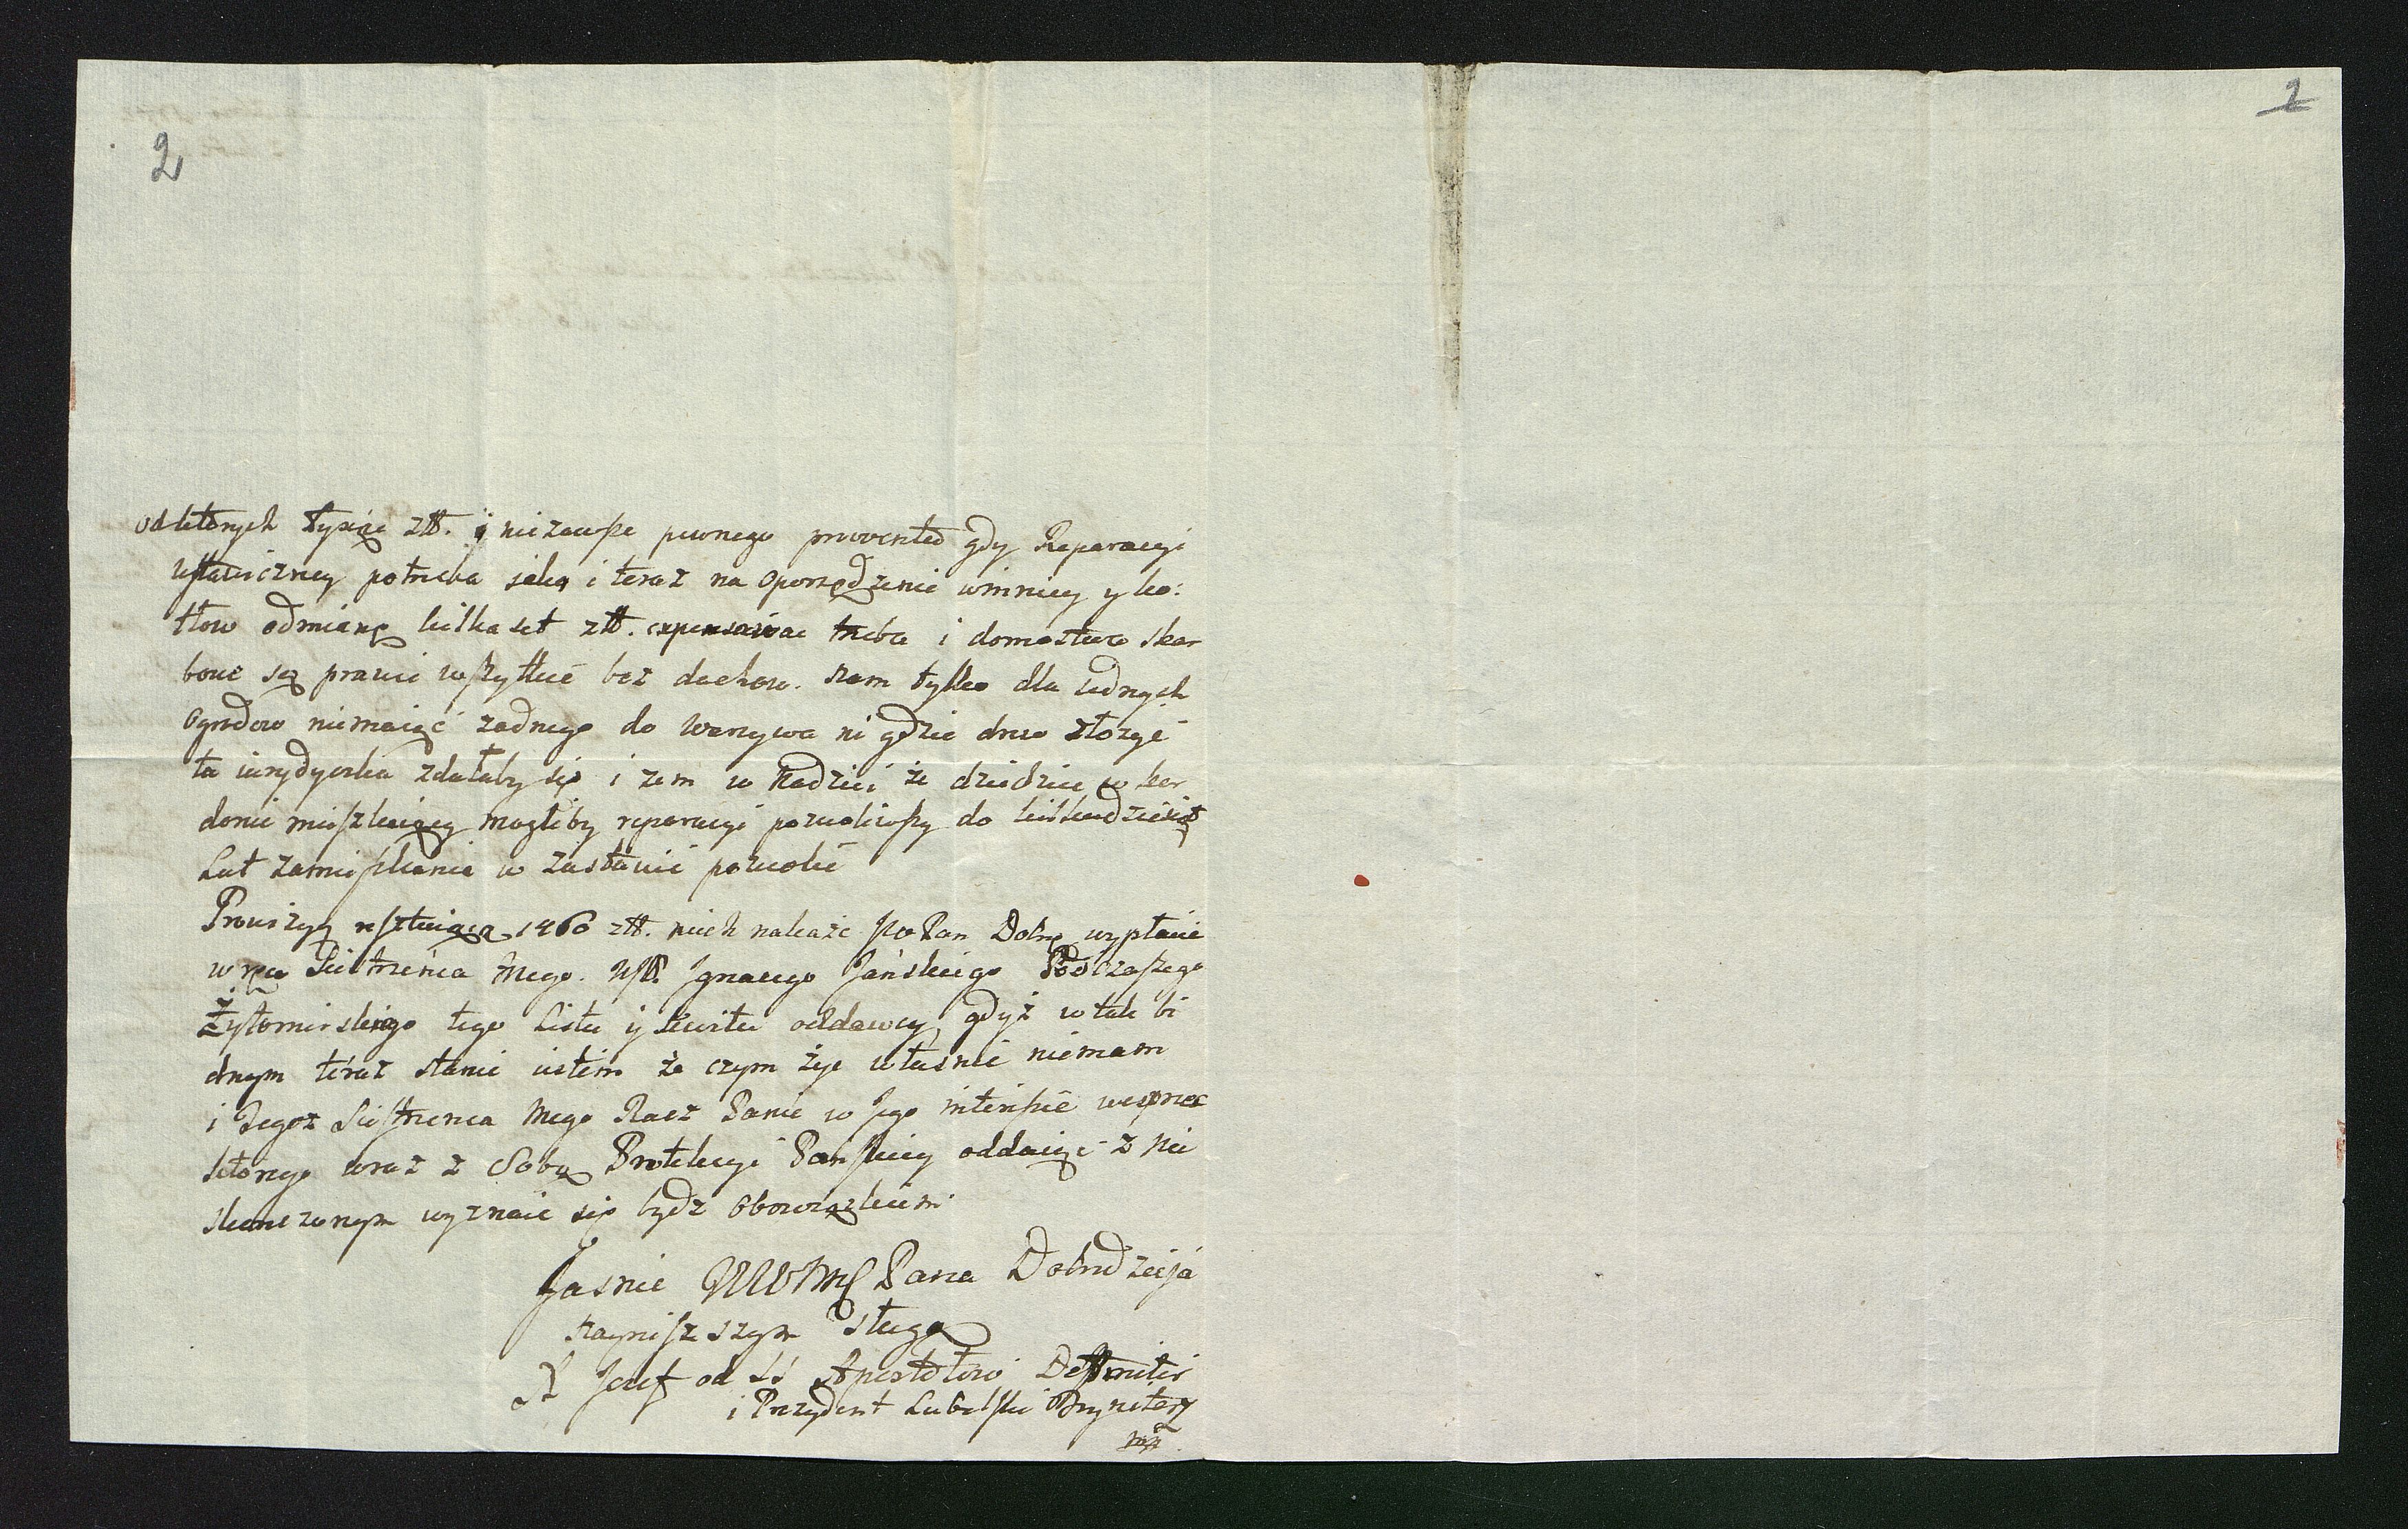 2
2
od ktorych tysiąc złł. i nie zawsze pewnego prowentu gdy Reparacyi
ustawiczney potrzeba jako i teraz na oporządzenie winnicy y ko:
tłow odmianę kilka set złł. expensować trzeba i domostwa skar
bowe są prawie wszytkie bez dachow. nam tylko dla iednych
ogrodow niemaiąc zadnego do warzywa ni gdzie drwo złozyć
ta iurydyczka zdałaby się i zem w nadziei że dziedzice w kor
donie mieszkaiący mogliby reparacyi pozwoliwszy do kilkudziesiąt
Lat zamieszkania w zastawie pozwolić
Prowizyą resztuiącą 1460 złł. niech nakaże JW Pan Dobr. wypłacić
w ręce Siestrzeńca mego. Ignacego Jańskiego Podczaszego
Żytomirskiego tego Listu y kwitu oddawcy, gdyż w tak bi
dnym teraz stanie iestem że czym żyć właśnie niemam
i Tegoż Siestrzenca mego Racz Panie w Jego interesie wesprzec
ktorego wraz z Sobą Protekcyi Panskiey oddaiąc z nie
skonczonym wyznaie się bydz obowiązkiem
Jasnie WWMC Pana Dobrodzieja
Nayniższym sługą
X Jozef od SS Apostołow Deffinitor
i Prezydent Lubelski Trynitarz
mp